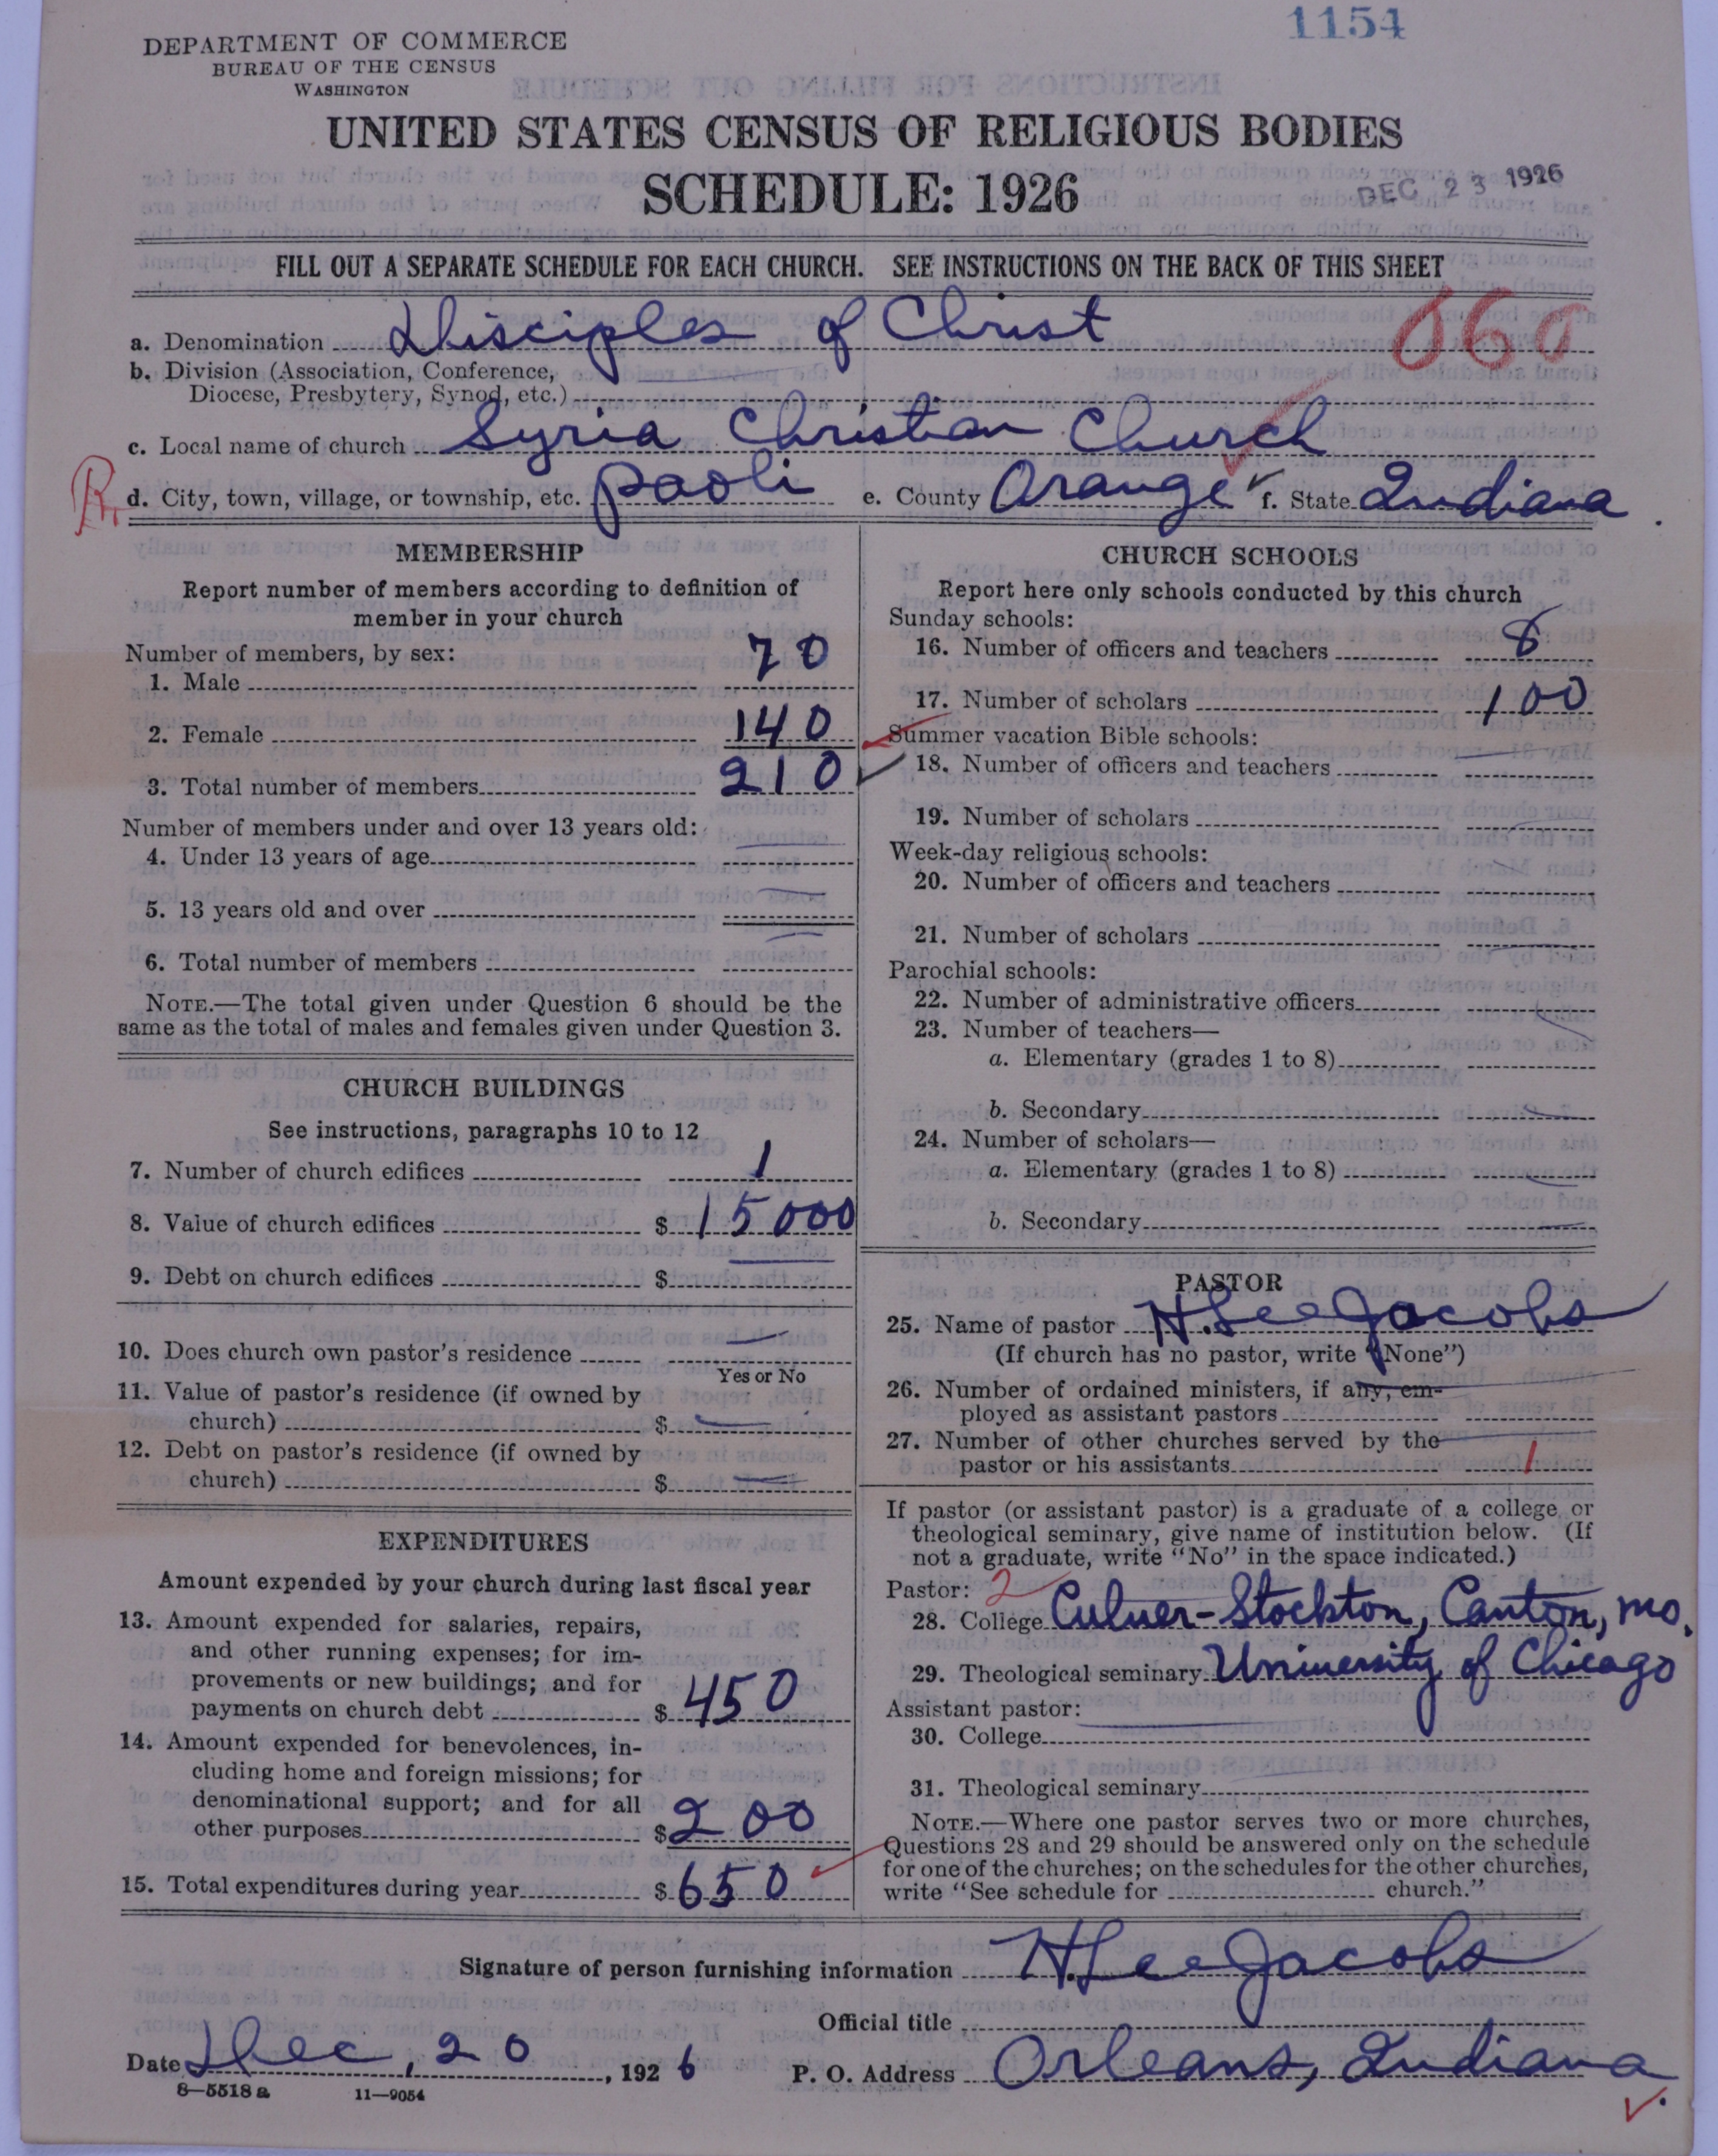 1154
DEPARTMENT OF COMMERCE
BUREAU OF THE CENSUS
WASHINGTON
UNITED STATES CENSUS OF RELIGIOUS BODIES
SCHEDULE: 1926
DEC 23 1926
FILL OUT A SEPARATE SCHEDULE FOR EACH CHURCH. SEE INSTRUCTIONS ON THE BACK OF THIS SHEET
060
a. Denomination Disciples of Christ
b. Division (Association, Conference,
Diocese, Presbytery, Synod, etc.)
c. Local name of church Syria Christian Church
R
d. City, town, village, or township, etc. Paoli e. County Orange f. State Indiana
MEMBERSHIP
Report number of members according to definition of
member in your church
Number of members, by sex:
1. Male 70
2. Female 140
3. Total number of members 210
Number of members under and over 13 years old:
4. Under 13 years of age
5. 13 years old and over
6. Total number of members
NOTE.—The total given under Question 6 should be the
same as the total of males and females given under Question 3.
CHURCH BUILDINGS
See instructions, paragraphs 10 to 12
7. Number of church edifices 1
8. Value of church edifices $ 15000
9. Debt on church edifices $
10. Does church own pastor's residence
Yes or No
11. Value of pastor's residence (if owned by
church) $
12. Debt on pastor's residence (if owned by
church) $
EXPENDITURES
Amount expended by your church during last fiscal year
13. Amount expended for salaries, repairs,
and other running expenses; for im-
provements or new buildings; and for
payments on church debt $ 450
14. Amount expended for benevolences, in-
cluding home and foreign missions; for
denominational support; and for all
other purposes $ 200
15. Total expenditures during year $ 650
CHURCH SCHOOLS
Report here only schools conducted by this church
Sunday schools:
16. Number of officers and teachers 8
17. Number of scholars 100
Summer vacation Bible schools:
18. Number of officers and teachers
19. Number of scholars
Week-day religious schools:
20. Number of officers and teachers
21. Number of scholars
Parochial schools:
22. Number of administrative officers
23. Number of teachers—
a. Elementary (grades 1 to 8)
b. Secondary
24. Number of scholars—
a. Elementary (grades 1 to 8)
b. Secondary
PASTOR
25. Name of pastor H. Lee Jacobs
(If church has no pastor, write "None")
26. Number of ordained ministers, if any, em-
ployed as assistant pastors
27. Number of other churches served by the
pastor or his assistants 1
If pastor (or assistant pastor) is a graduate of a college or
theological seminary, give name of institution below. (If
not a graduate, write "No" in the space indicated.)
Pastor: 2
28. College Culver-Stockton, Canton, Mo.
29. Theological seminary University of Chicago
Assistant pastor:
30. College
31. Theological seminary
NOTE.—Where one pastor serves two or more churches,
Questions 28 and 29 should be answered only on the schedule
for one of the churches; on the schedules for the other churches,
write "See schedule for church."
Signature of person furnishing information H. Lee Jacobs
Official title
Date Dec, 20, 1926 P. O. Address Orleans, Indiana
8—5518a 11—9054